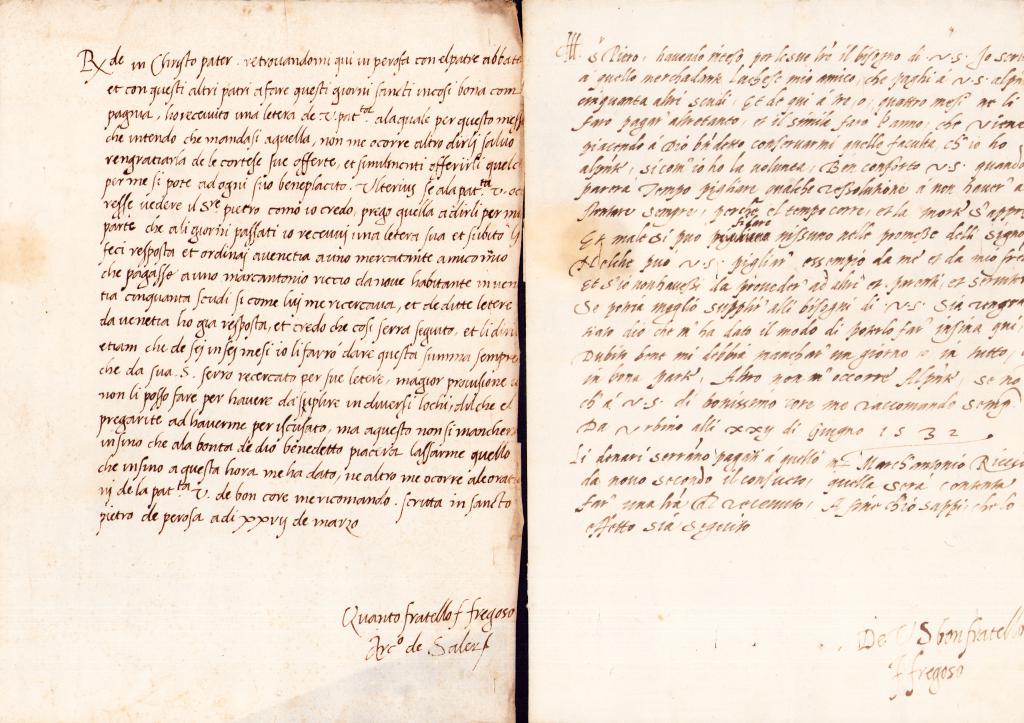 Rx de in Christo pater. retrovandomi qui in perosa con el patre abbate
et con questi altri patri a fare questi giorni sancti in cosi bona com
pagnia, ho recevuto una letera de V. pat. ala quale per questo messo
che intendo che mandasi a quella, non me ocorre altro dirli salvo
rengratiarla de le cortese sue offerte, et similmenti offerirli quel
per me si pote ad ogni suo beneplacito. Ulterius se ala pat.ta V. oc
resse vedere il S.re pietro como io credo, prego quella a dirli per mia
parte che ali giorni passati io recevui una letera sua et subito li
feci resposta et ordinai a venetia a uno mercatante amico mio
che pagasse a uno marcantonio riccio da nove habitante in vene
tia cinquanta scudi si come lui me ricercava, et de ditte letere
da venetia ho gia resposta, et credo che cosi serra seguito, et li diri
etiam che de sei in sei mesi io li farrò dare questa summa sempre
che da sua .S. serro recercato per sue letere, magior provisione
non li posso fare per havere da suplire in diversi lochi, dil che el
pregarite ad haverme per iscusato, ma a questo non si mancherà
insino che ala bonta de dio benedetto piacira lassarme quello
che insino a questa hora me ha dato, ne altro me ocorre ale orati
ni de la pat.ta V. de bon core me ricomando. scritta in sancto
pietro de perosa a di xxvij de marzo
Quanto fratello f fregoso
Arc.o de Saler
Ill. S. Pietro, havendo inteso, per le sue l're il bisogno di V.S. Jo scri
à quello merchadante luchese mio amico, che paghi à V.S. alpn
cinquanta altri scudi, Et de qui à tre, o, quattro mesi ne li
faro pagar altretanto, et il simile faro l'anno, che viene
piacendo à Dió b'n detto conservarmi quelle facultà ch' io ho
alpn'te, si com' io ho la voluntà, Ben conforto V.S. quando
parera Tempo pigliare qualche ressolutione à non haver a
stentare sempre, perche el tempo corre, et la morte s'appr
Et male si puo fidare nissuno nelle promesse delli Signo
Delche puo V.S. pigliar essempio da me et da mio fre
Et s'io non havessi da proveder ad altri et parenti, et servito
Se potria meglio supplir' alli bisogni di V.S. Sia rengra
tiato dio che m' ha dato il modo di poterlo far' insina qui
Dubito bene mi debbia manchar' un giorno o in tutto,
in bona parte, Altro non m' occorre Alpn'te, se no
ch' à V.S. di bonissimo core me raccomando Semp.
Da Urbino alli xxv di Giugno 1532
Li denari serrano pagati à quello m. Marchantonio Riccio
da novo secondo il consueto, quella sera contenta
far' una di recevuto, A fine ch'io sappi, che lo
effetto sia seguito
De V S bon fratello
f fregoso